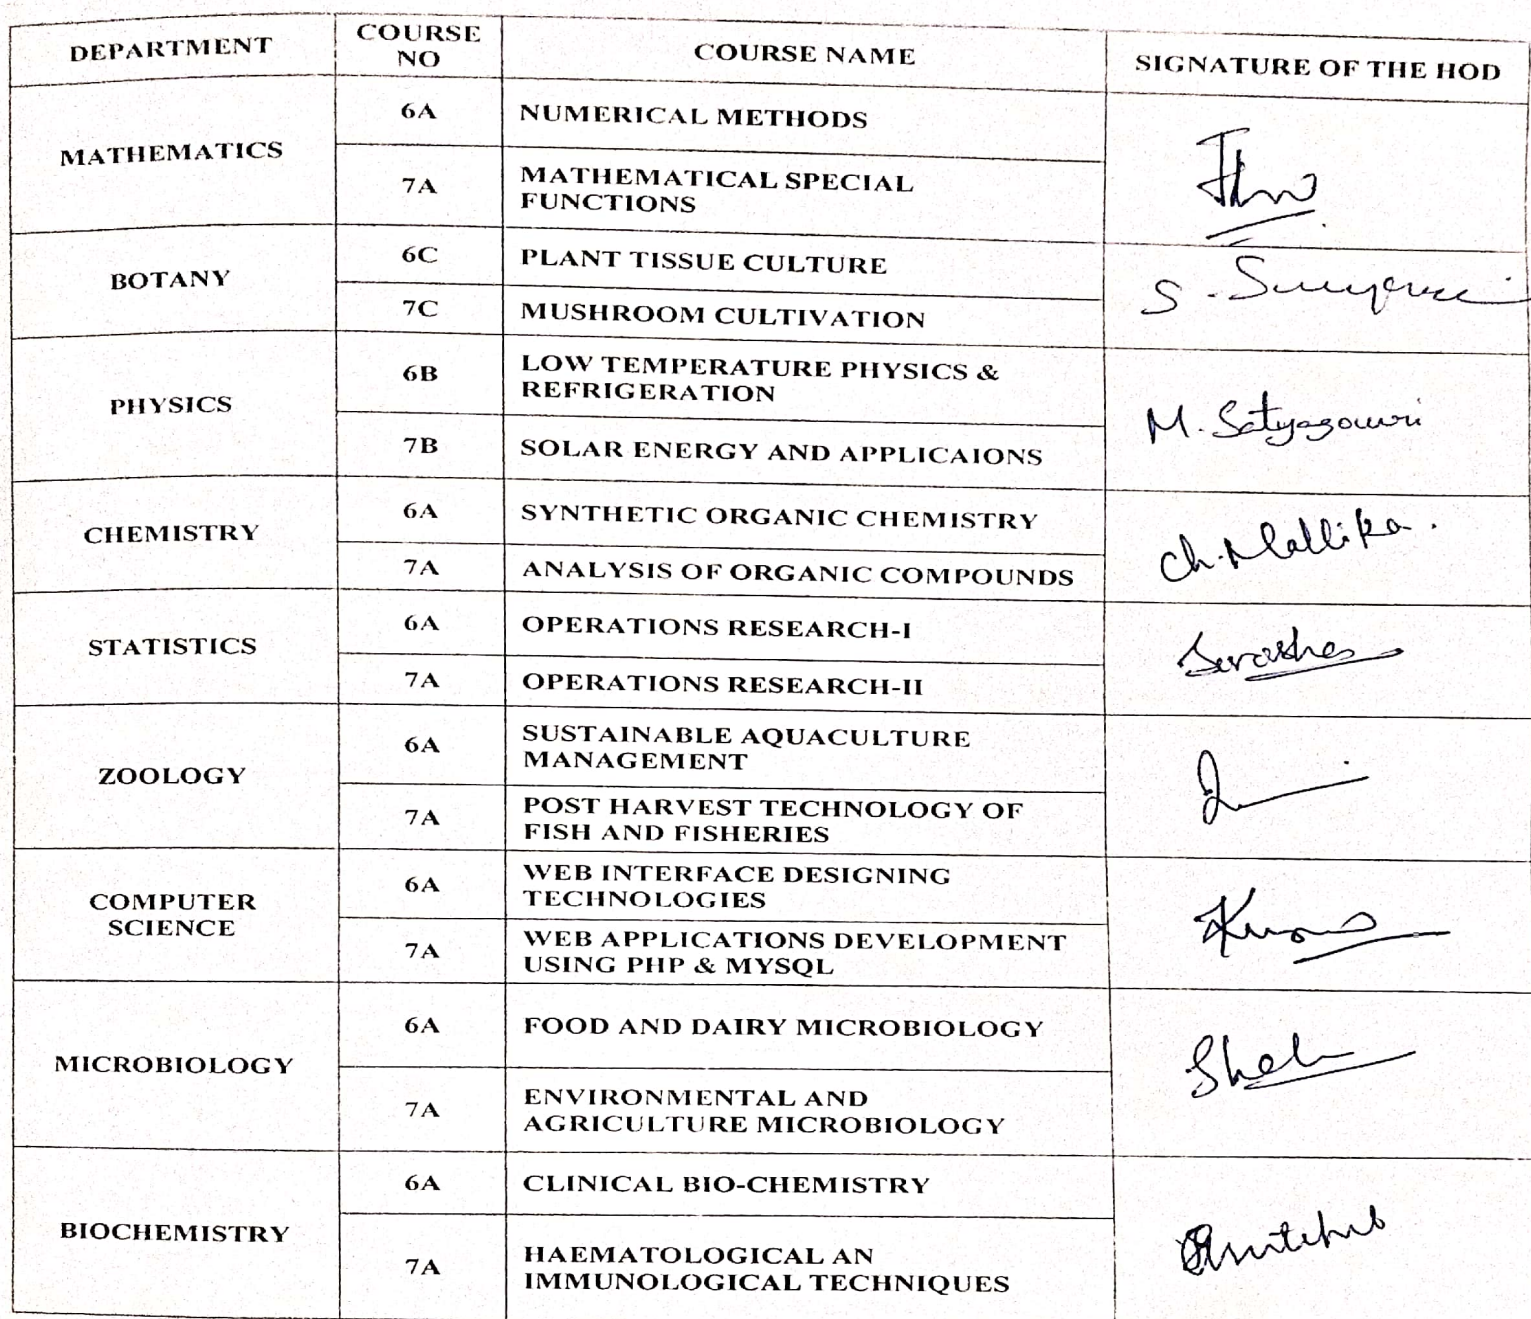 DEPARTMENT
COURSE
NO
COURSE NAME
SIGNATURE OF THE HOD
MATHEMATICS
6A
NUMERICAL METHODS
7A
MATHEMATICAL SPECIAL
FUNCTIONS
BOTANY
6C
PLANT TISSUE CULTURE
7C
MUSHROOM CULTIVATION
PHYSICS
6B
LOW TEMPERATURE PHYSICS &
REFRIGERATION
M. Satyagowri
7B
SOLAR ENERGY AND APPLICAIONS
CHEMISTRY
6A
SYNTHETIC ORGANIC CHEMISTRY
Ch. Mallika.
7A
ANALYSIS OF ORGANIC COMPOUNDS
STATISTICS
6A
OPERATIONS RESEARCH-I
7A
OPERATIONS RESEARCH-II
ZOOLOGY
6A
SUSTAINABLE AQUACULTURE
MANAGEMENT
7A
POST HARVEST TECHNOLOGY OF
FISH AND FISHERIES
COMPUTER
SCIENCE
6A
WEB INTERFACE DESIGNING
TECHNOLOGIES
7A
WEB APPLICATIONS DEVELOPMENT
USING PHP & MYSQL
MICROBIOLOGY
6A
FOOD AND DAIRY MICROBIOLOGY
7A
ENVIRONMENTAL AND
AGRICULTURE MICROBIOLOGY
BIOCHEMISTRY
6A
CLINICAL BIO-CHEMISTRY
7A
HAEMATOLOGICAL AN
IMMUNOLOGICAL TECHNIQUES